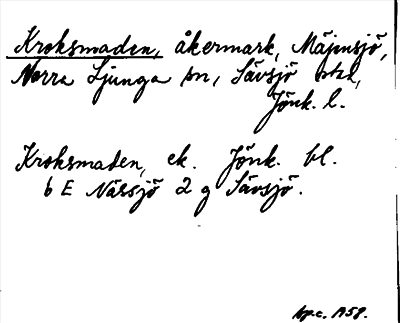 Kroksmaden, åkermark, Mäjensjö,
Norra Ljunga sn, Sävsjö stad,
Jönk. l.
Kroksmaden, ek. Jönk. bl.
6 E Nässjö 2 g Sävsjö.
1958.